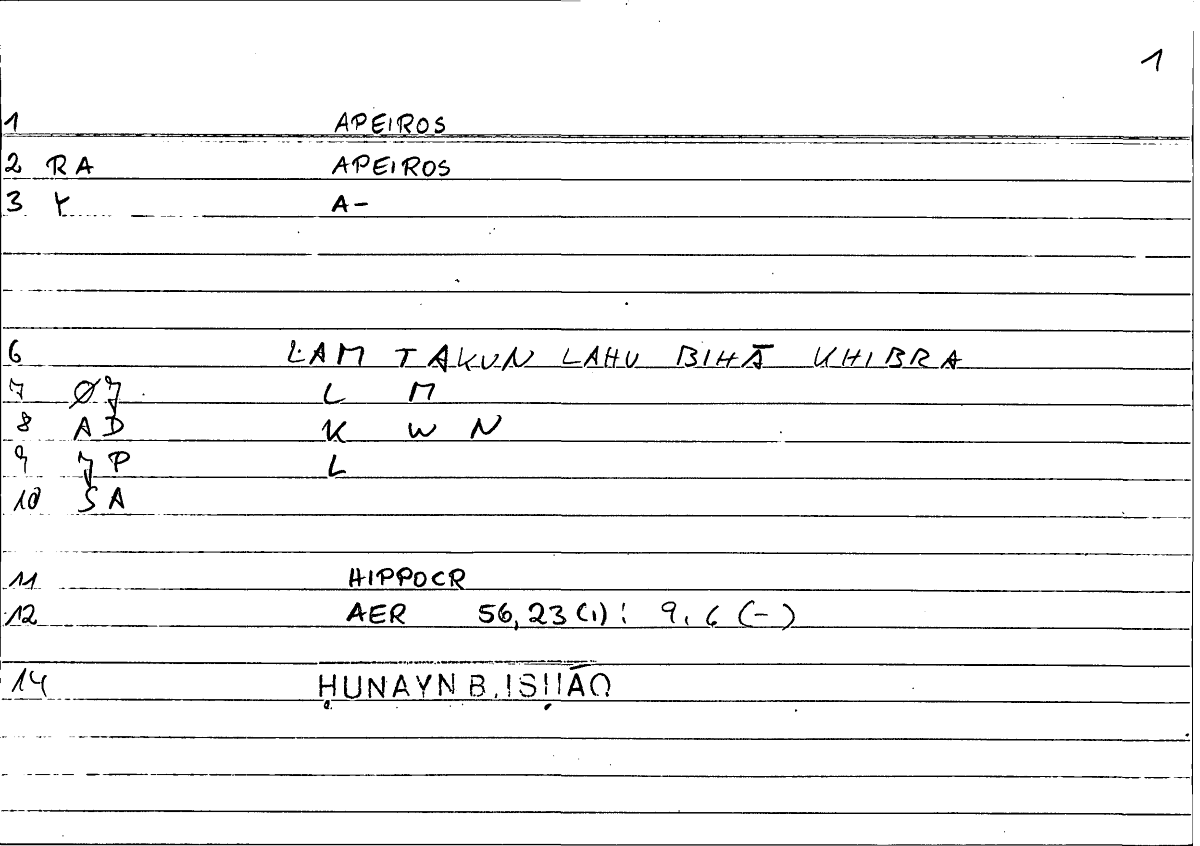 1
1 APEIROS
2 RA APEIROS
3 Y A-
6 LAM TAKUN LAHU BIHĀ KHIBRA
7 ØJ L M
8 AD K W N
9 JP L
10 SA
11 HIPPOCR
12 AER 56,23(1): 9,6 (-)
14 ḤUNAYN B. ISḤĀQ